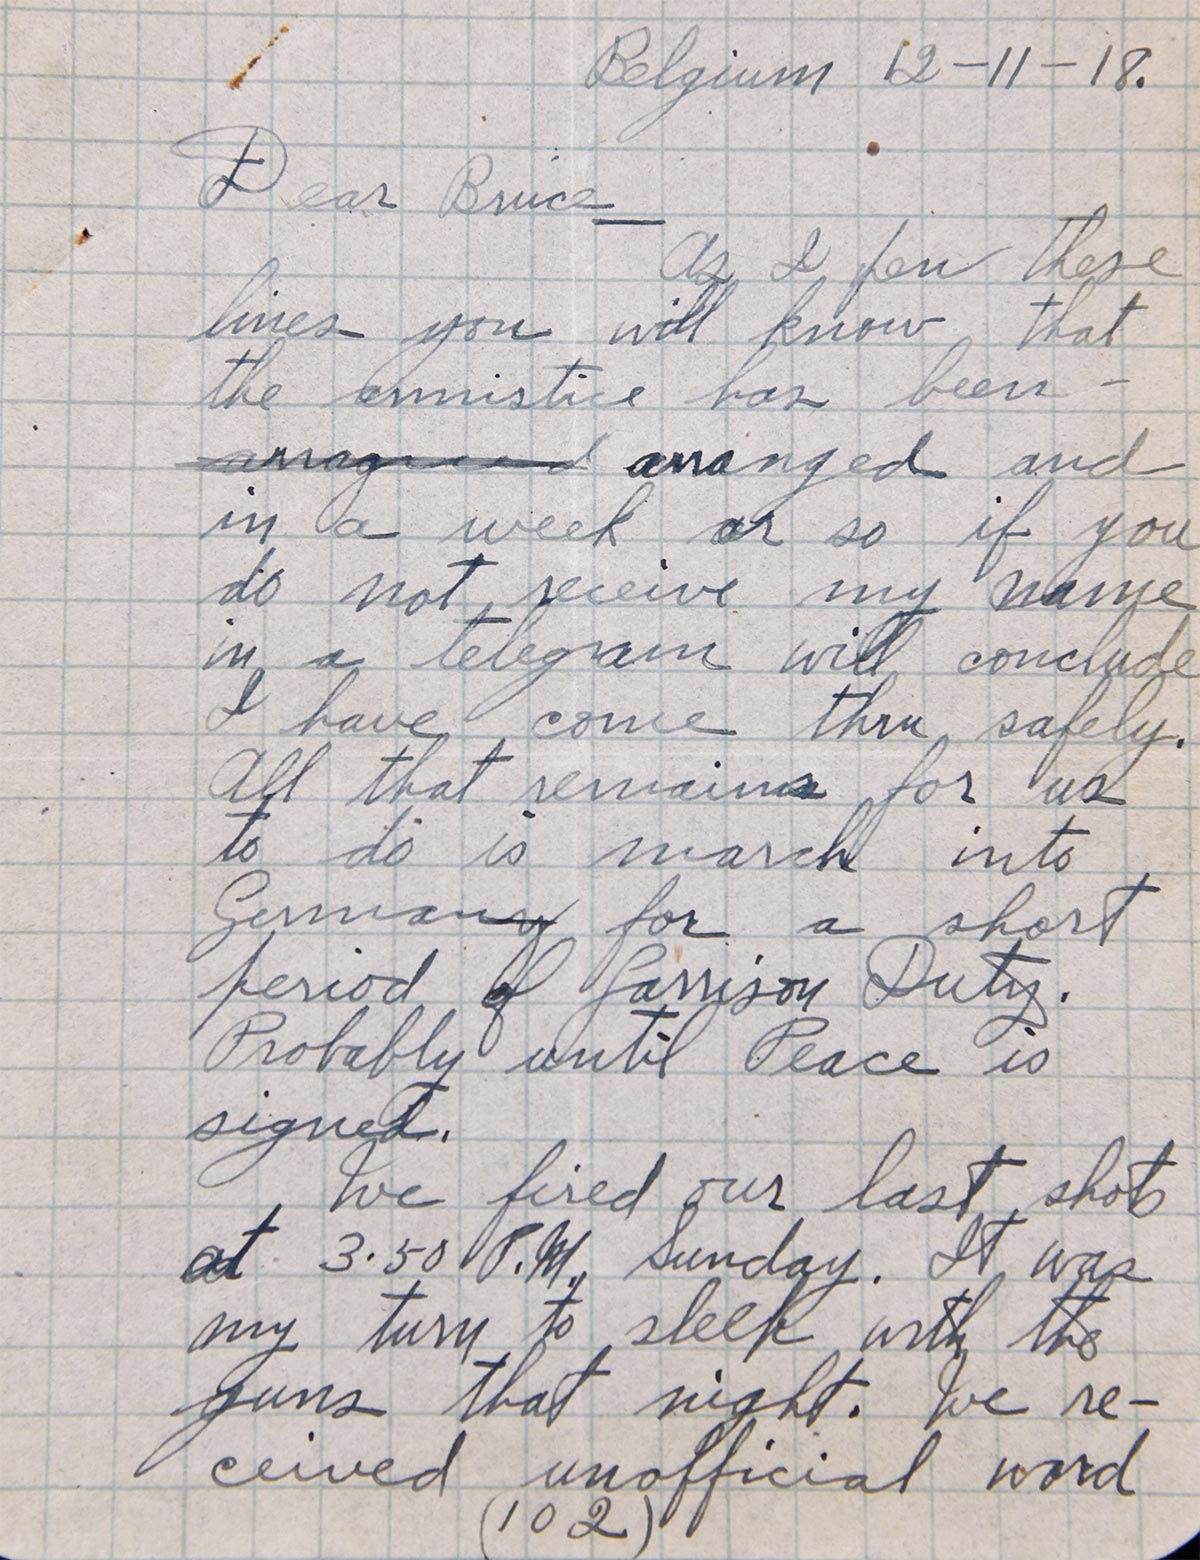 Belgium 12-11-18.
Dear Bruce_
As I pen these
lines you will know that
the armistice has been -
arranged and
in a week or so if you
do not receive my name
in a telegram will conclude
I have come thru safely.
All that remains for us
to do is march into
Germany for a short
period of Garrison Duty.
Probably until Peace is
signed.
We fired our last shot
at 3.50 P.M., Sunday. It was
my turn to sleep with the
guns that night. We re-
ceived unofficial word
(102)